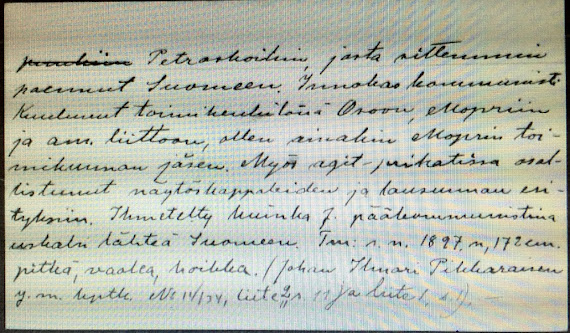 Petroskoihin, josta sittemmin
paennut Suomeen. Innokas kommunisti.
Kuulunut toimihenkilönä Osoon, Mopriin
ja am. liittoon, ollen ainakin Moprin toi-
mikunnan jäsen. Myös agit-prikatissa osal-
listunut näytöskappaleiden ja lausunnan esi-
tyksiin. Ihmetelty kuinka J. pääkommunistina
uskalsi lähteä Suomeen. Tm: s. n. 1897, n. 172 cm.
pitkä, vaalea, hoikka. (Johan Ilmari Pikkaraisen
y.m. kptk. No 14/34, liite 2, s. 11 ja liite 1, s. 1). -